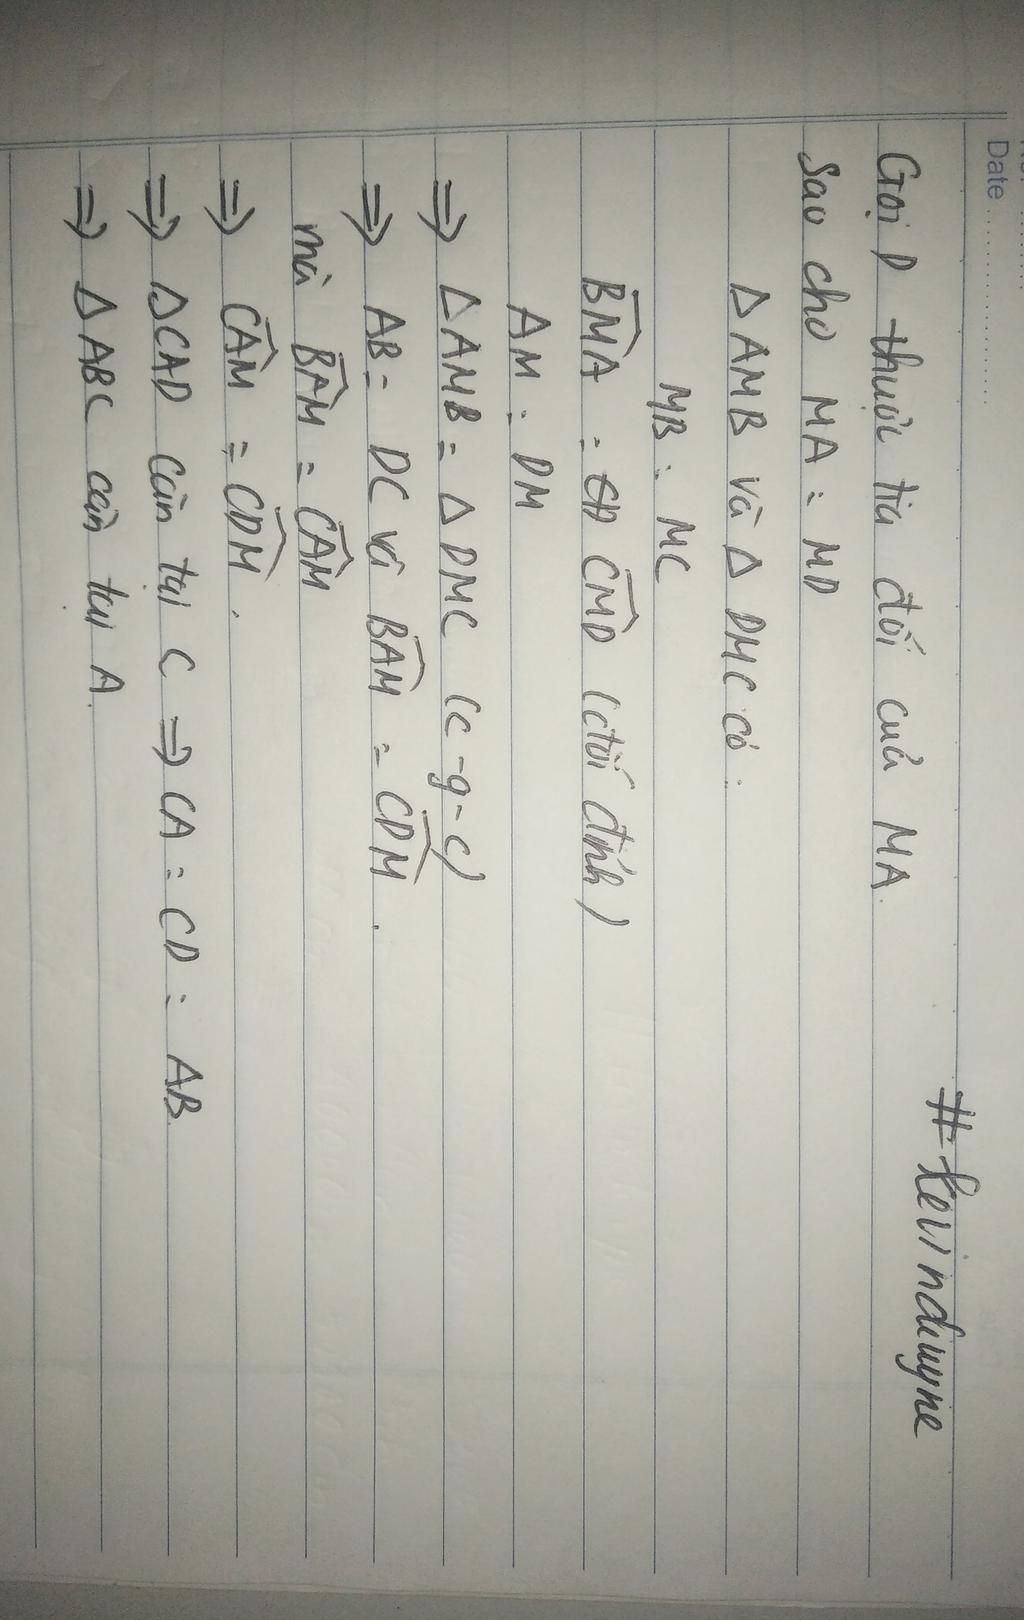 No: ........
Date ................
#kevinduyne
Gọi D thuộc tia đối của MA.
Sao cho MA = MD
Δ AMB và Δ DMC có:
MB = MC
BMA = CMD (đối đỉnh)
AM = DM
⇒ Δ AMB = Δ DMC (c-g-c)
⇒ AB = DC và BAM = CDM.
mà BAM = CAM
⇒ CAM = CDM.
⇒ ΔCAD cân tại C ⇒ CA = CD = AB.
⇒ Δ ABC cân tại A.